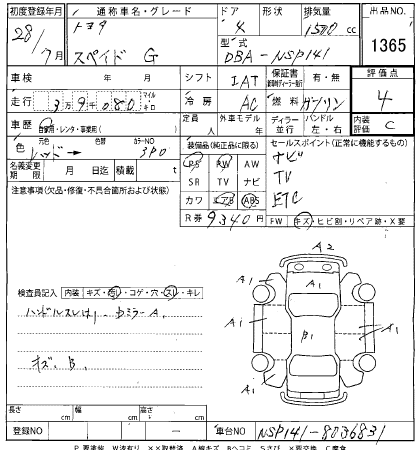 初度登録年月 通称車名・グレード ドア 形状 排気量 出品NO.
28/7月 トヨタ スペイド G 4 1500 cc 1365
型式 DBA-NSP141
車検 年 月 シフト IAT 保証書 有・無 評価点
走行 3万9千080 マイル キロ 冷房 AC 燃料 ガソリン 4
車歴 自家用・レンタ・事業用( ) 定員 人 外車モデル 年 ディーラー 並行 ハンドル 左・右 内装評価 C
色 レッド→ 色替 カラーNO 3P0 装備品(純正品に限る) セールスポイント(正常に機能するもの)
PS PW AW ナビ
名義変更期限 月 日迄 積載 t SR TV ナビ TV
注意事項(欠品・修復・不具合箇所および状態) カワ エアB ABS ETC
R券 9340円 FW キズ・ヒビ割・リペア跡・X要
A2
A1 A1
A1 B1 A1
検査員記入 内装 キズ・汚れ・コゲ・穴・スレ・キレ
ハンドルスレ
キズ、B、
長さ cm 幅 cm 高さ cm
登録NO ー 車台NO NSP141-8036831